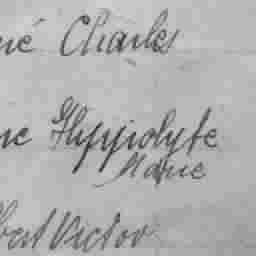 né Charles
ne Hyppolyte
Marie
bert Victor